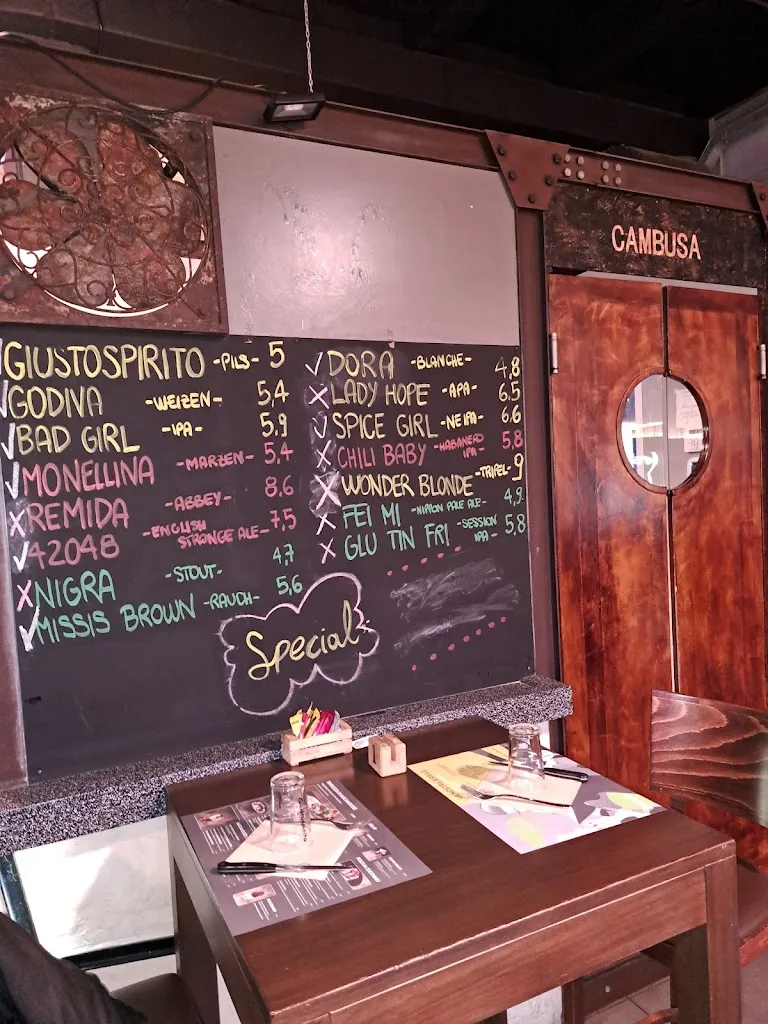 CAMBUSA
GIUSTOSPIRITO -PILS- 5
GODIVA -WEIZEN- 5,4
BAD GIRL -IPA- 5,9
MONELLINA -MARZEN- 5,4
REMIDA -ABBEY- 8,6
42048 -ENGLISH STRONGE ALE- 7,5
NIGRA -STOUT- 4,7
MISSIS BROWN -RAUCH- 5,6
DORA -BLANCHE- 4,8
LADY HOPE -APA- 6.5
SPICE GIRL -NEIPA- 6.6
CHILI BABY -HABANERO IPA- 5,8
WONDER BLONDE -TRIPEL- 9
FEI MI -NIPPON PALE ALE- 4,9
GLU TIN FRI -SESSION IPA- 5,8
Special